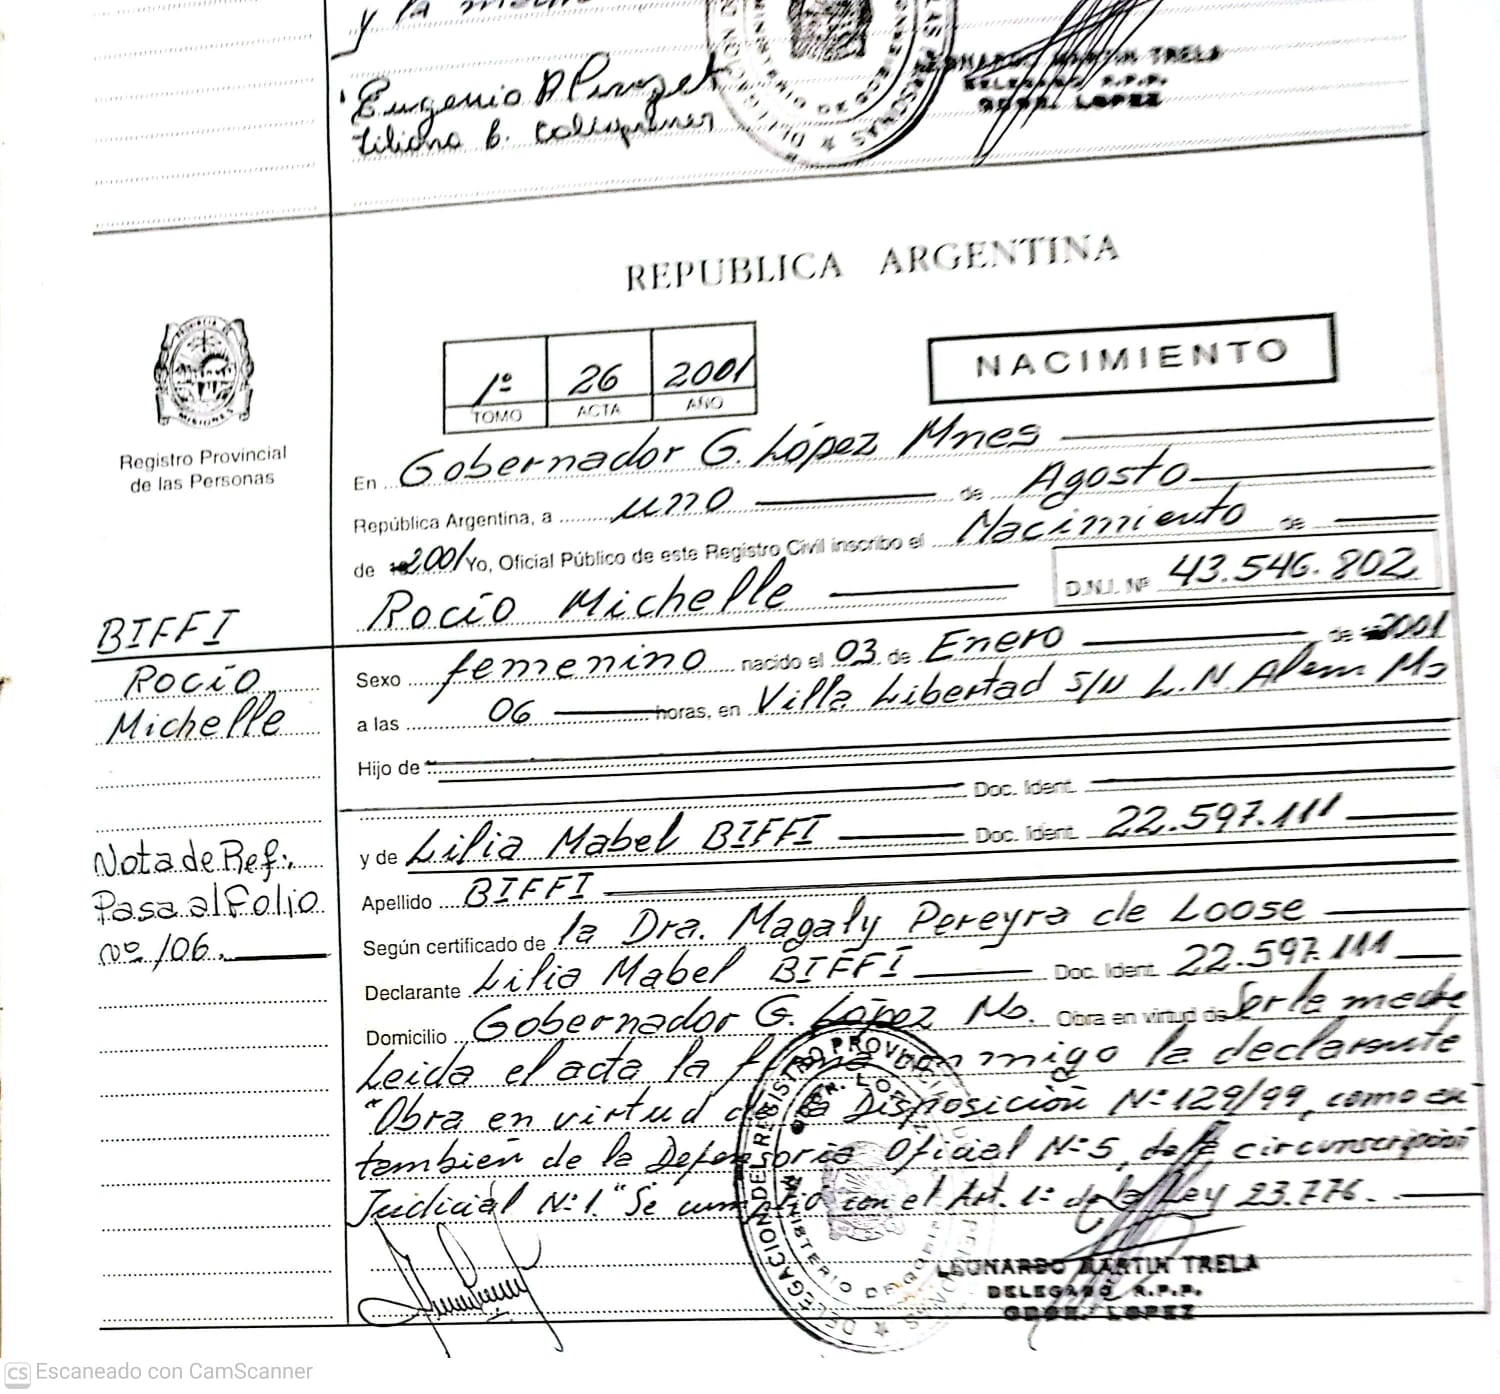 y la
Eugenio A
Liliana B.
LEONARDO MARTIN TRELA
DELEGADO R.P.P.
GDOR. LOPEZ
REPUBLICA ARGENTINA
PROVINCIA DE
MISIONES
Registro Provincial
de las Personas
1º 26 2001
TOMO ACTA AÑO
NACIMIENTO
En Gobernador G. López Mnes
República Argentina, a uno de Agosto
de 2001 Yo, Oficial Público de este Registro Civil inscribo el Nacimiento de
Rocío Michelle D.N.I. Nº 43.546.802
BIFFI
Rocío
Michelle
Sexo femenino nacido el 03 de Enero de 2001
a las 06 horas, en Villa Libertad S/N L.N. Alem Ms
Hijo de
Doc. Ident.
y de Lilia Mabel BIFFI Doc. Ident. 22.597.111
Nota de Ref:
Pasa al Folio
Nº 106.
Apellido BIFFI
Según certificado de la Dra. Magaly Pereyra de Loose
Declarante Lilia Mabel BIFFI Doc. Ident. 22.597.111
Domicilio Gobernador G. López Ms. Obra en virtud de Ser la madre
Leida el acta la firma conmigo la declarante
"Obra en virtud de la Disposición Nº 129/99, como
también de la Defensoria Oficial Nº 5, de la circunscripción
Judicial Nº 1." Se cumplio con el Art. 1º de la Ley 23.776.
DELEGACION DEL REGISTRO PROVINCIAL
GDOR. LOPEZ
MINISTERIO DE GOBIERNO
LEONARDO MARTIN TRELA
DELEGADO R.P.P.
GDOR. LOPEZ
CS Escaneado con CamScanner